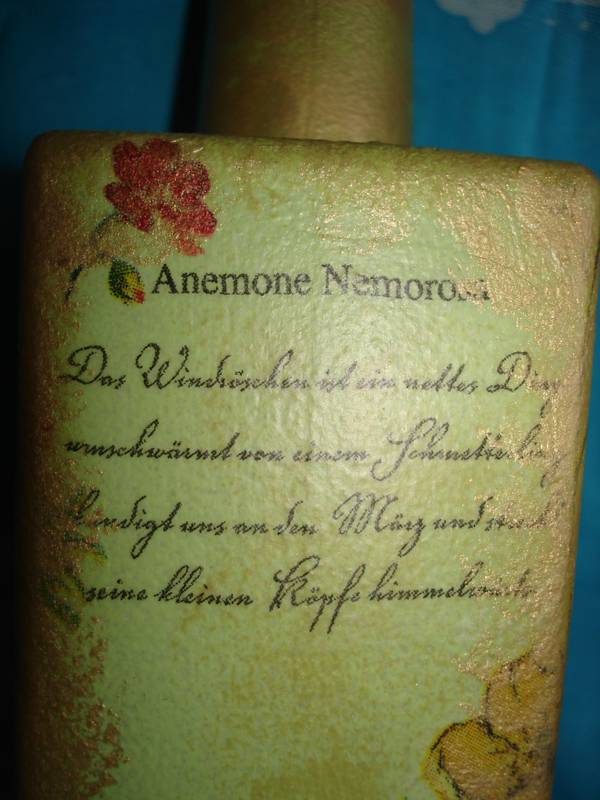 Anemone Nemorosa
Das Windröschen ist ein nettes Ding
umschwärmt von einem Schmetterling
kündigt uns an den März und streckt
seine kleinen Köpfe himmelwärts